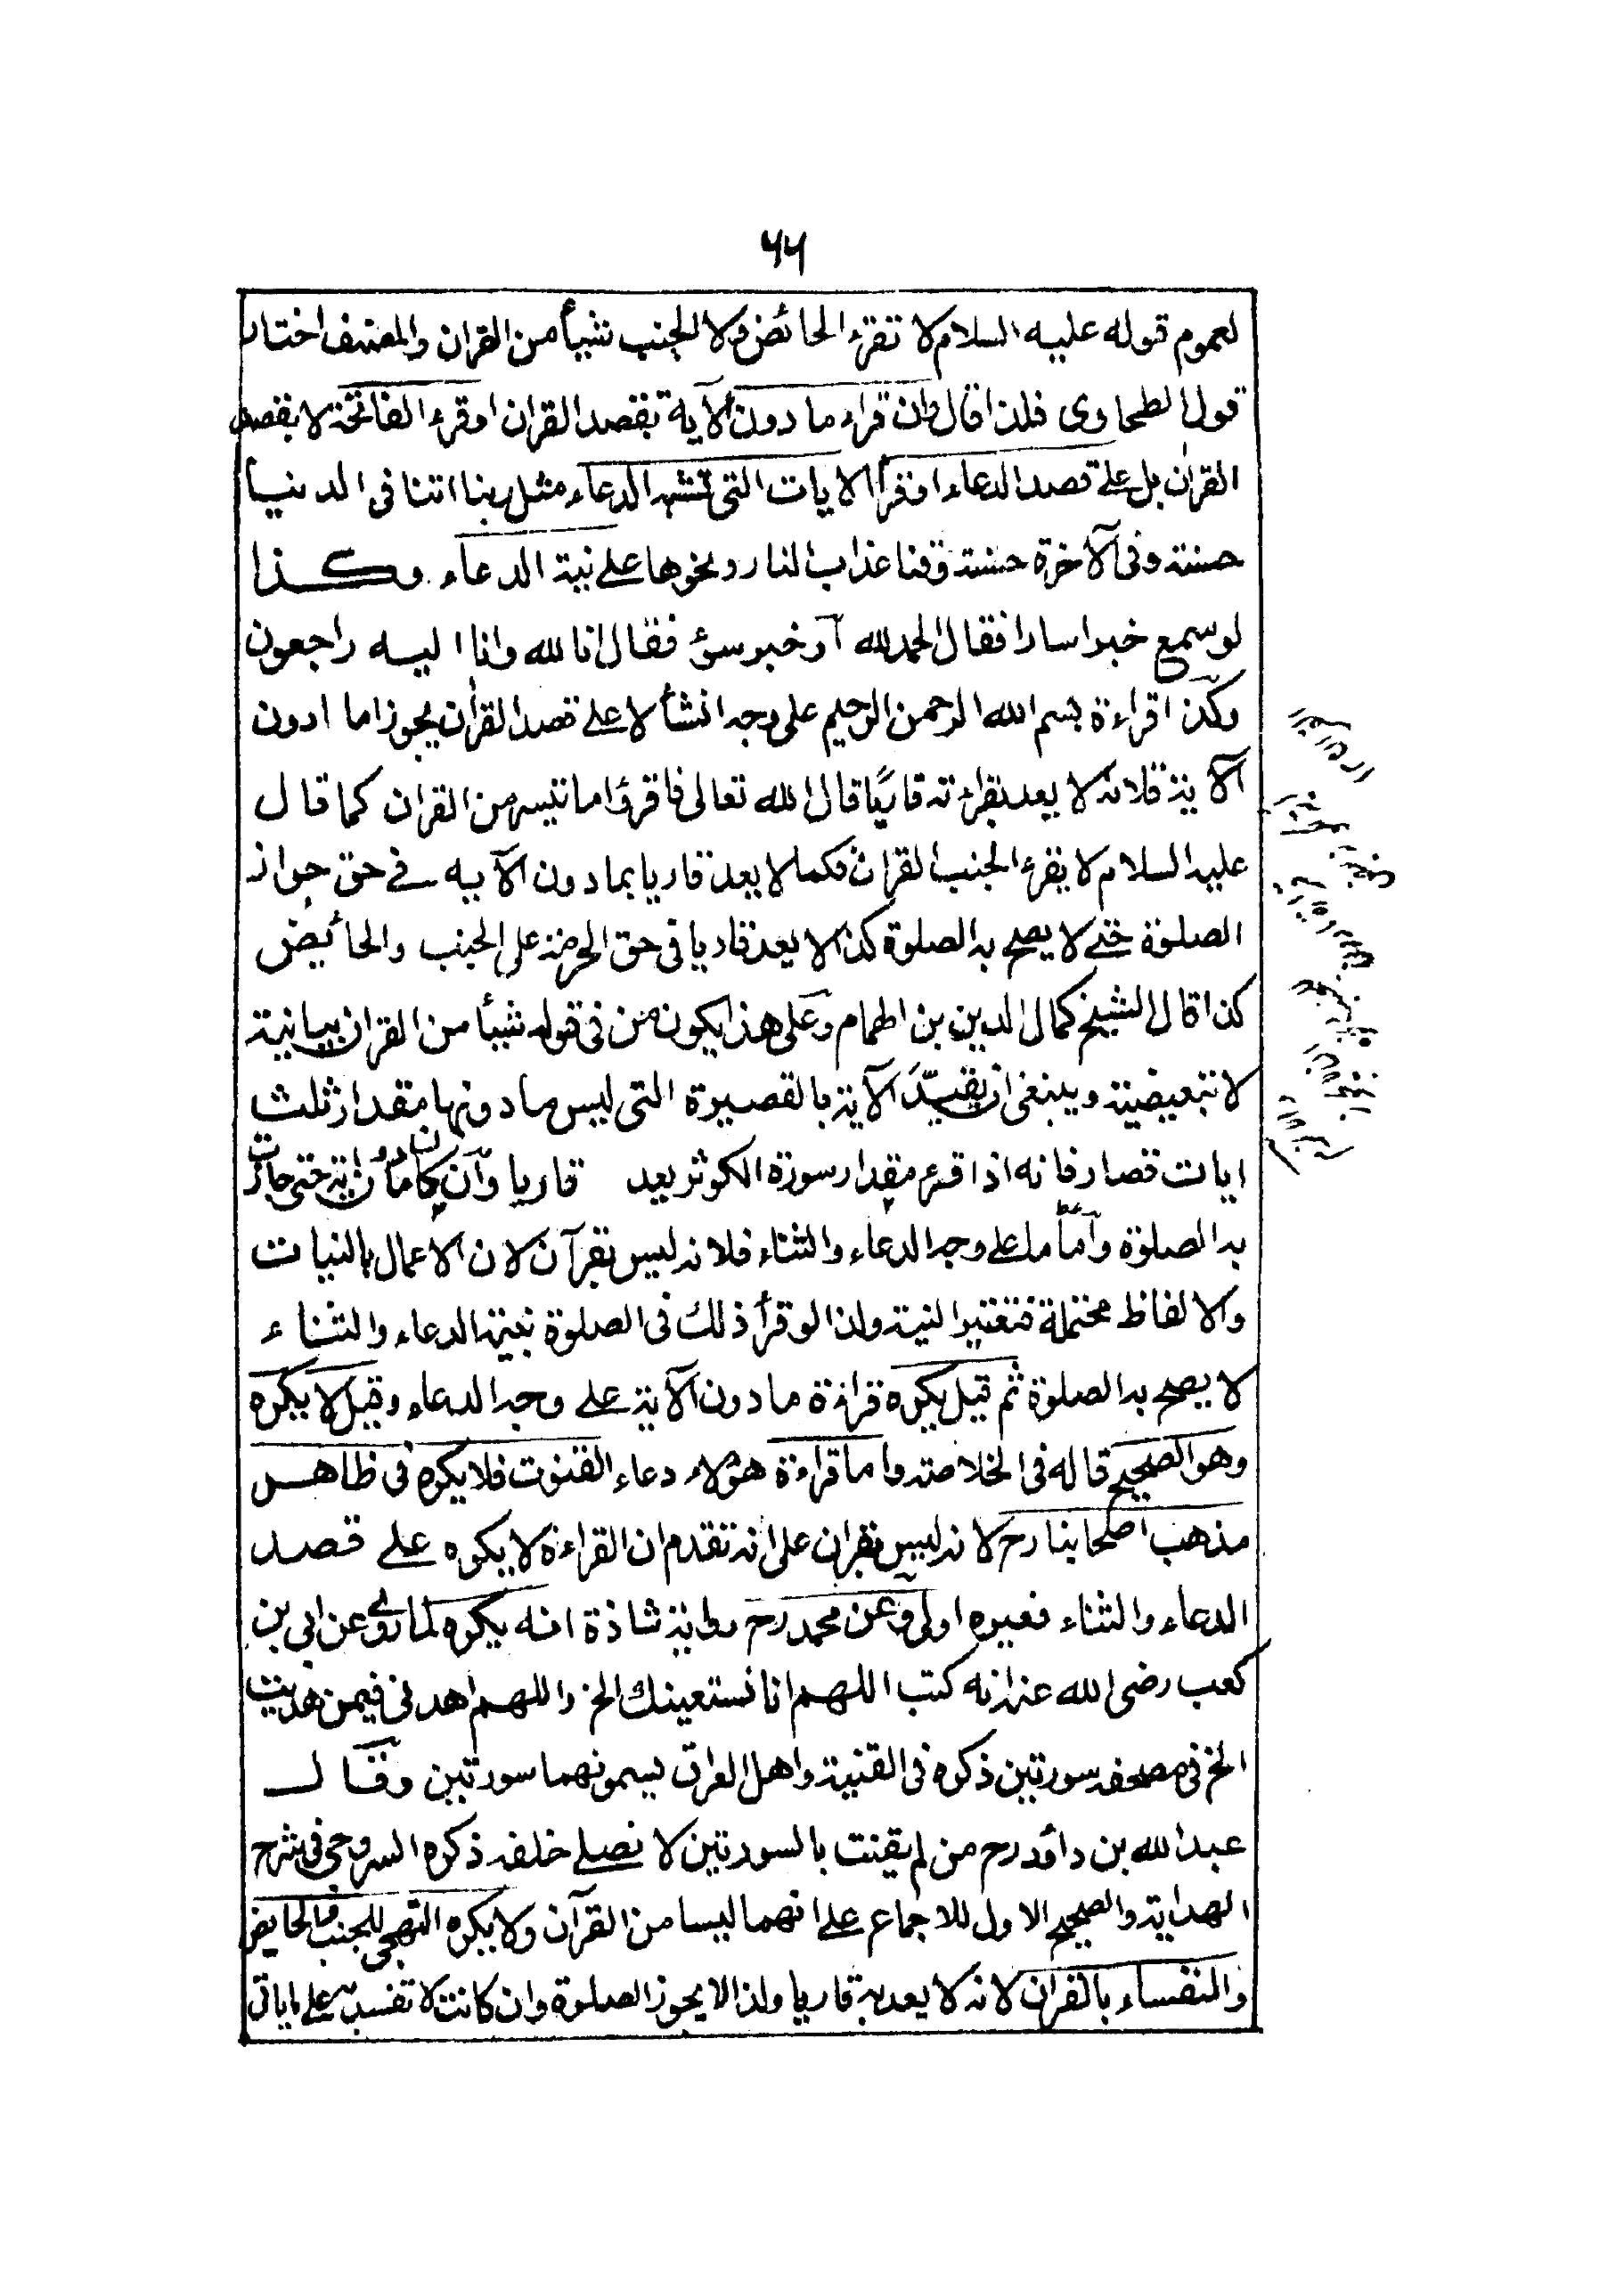 ۶۶
لعموم قوله عليه السلام لا تقرء الحائض ولا الجنب شيأ من القران والمصنف اختار
قول الطحاوى فلذا قال وان قراء ما دون الآية بقصد القران او قرء الفاتحة لا بقصد
القران بل على قصد الدعاء او قرأ الايات التى تشبه الدعاء مثل ربنا اتنا فى الدنيا
حسنة وفى الآخرة حسنة وقنا عذاب النار ونحوها على نية الدعاء وكذا
لو سمع خبرا سارا فقال الحمد لله آو خبر سئ فقال انا لله وانا اليه راجعون
وكذا قراءة بسم الله الرحمن الرحيم على وجه انشأ لا على قصد القران يجوز اما ادون
الآية فلانه لا يعد بقراءته قاريًا قال الله تعالى فاقرؤا ما تيسر من القران كما قال
عليه السلام لا يقرء الجنب القران فكما لا يعد قاريا بما دون الآيه فى حق جواز
الصلوة حتى لا يصح به الصلوة كذا لا يعد قاريا فى حق الحرمة على الجنب والحائيض
كذا قال الشيخ كمال الدين بن الهمام وعلى هذا يكون من فى قوله شيأ من القران بيانية
لا تبعيضية وينبغى ان يقيّد الآية بالقصيرة التى ليس ما دونها مقدار ثلث
ايات قصار فانه اذا قرء مقدار سورة الكوثر يعد قاريا وآن كان دون اية حتى جازت
به الصلوة وآما ما على وجه الدعاء والثناء فلانه ليس بقرآن لان الاعمال بالنيات
والالفاظ محتملة فتعتبر النية ولذا لو قرأ ذلك فى الصلوة بنية الدعاء والثناء
لا يصح به الصلوة ثم قيل يكره قراءة ما دون الآية على وجه الدعاء وقيل لا يكره
وهو الصحيح قاله فى الخلاصه واما قراءة هؤلاء دعاء القنوت فلا يكره فى ظاهر
مذهب اصحابنا رح لانه ليس بقران على انه تقدم ان القراءة لا يكره على قصد
الدعاء والثناء فغيره اولى وعن محمد رح رواية شاذة انه يكره لما روى عن ابى بن
كعب رضى الله عنه انه كتب اللهم انا نستعينك الخ واللهم اهدنى فيمن هديت
الخ فى مصحفه سورتين ذكره فى القنية واهل العراق يسمونهما سورتين وقال
عبد الله بن داؤد رح من لم يقنت بالسورتين لا نصلى خلفه ذكره السروجى فى شرح
الهداية والصحيح الاول للاجماع على انهما ليسا من القرآن ولا يكره التهجى للجنب والحايض
والنفساء بالقران لانه لا يعد به قاريا ولذا لا يجوز الصلوة وان كانت لا تفسد على ما ياتى